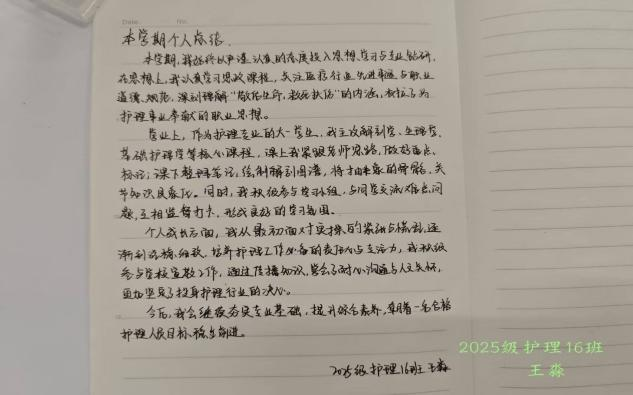 Date. No.
本学期个人总结.
本学期,我始终以严谨认真的态度投入思想、学习与专业钻研,
在思想上,我认真学习思政课程,关注医疗行业先进事迹与职业
道德、规范,深刻理解“敬佑生命,救死扶伤”的内涵,树立了为
护理事业奉献的职业思想。
学业上,作为护理专业的大一学生,我主攻解剖学、生理学、
基础护理学等核心课程,课上我紧跟老师思路,做好重点、
标记;课下整理笔记,绘制解剖图谱,将抽象的骨骼,关
节知识具象化。同时,我积极参与学习小组,与同学交流难点问
题,互相监督打卡,形成良好的学习氛围。
个人成长方面,我从最初面对实操的紧张与慌乱,逐
渐到沉稳、细致,培养护理工作必备的责任心与专注力,我积极
参与学校宣教工作,通过传播知识,学会了耐心沟通与人文关怀,
更加坚定了投身护理行业的决心。
今后,我会继续夯实专业基础,提升综合素养,朝着一名合格
护理人员目标,稳步前进。
2025级 护理16班 王淼
2025级护理16班
王淼